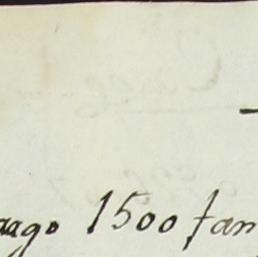 aago 1500 fan